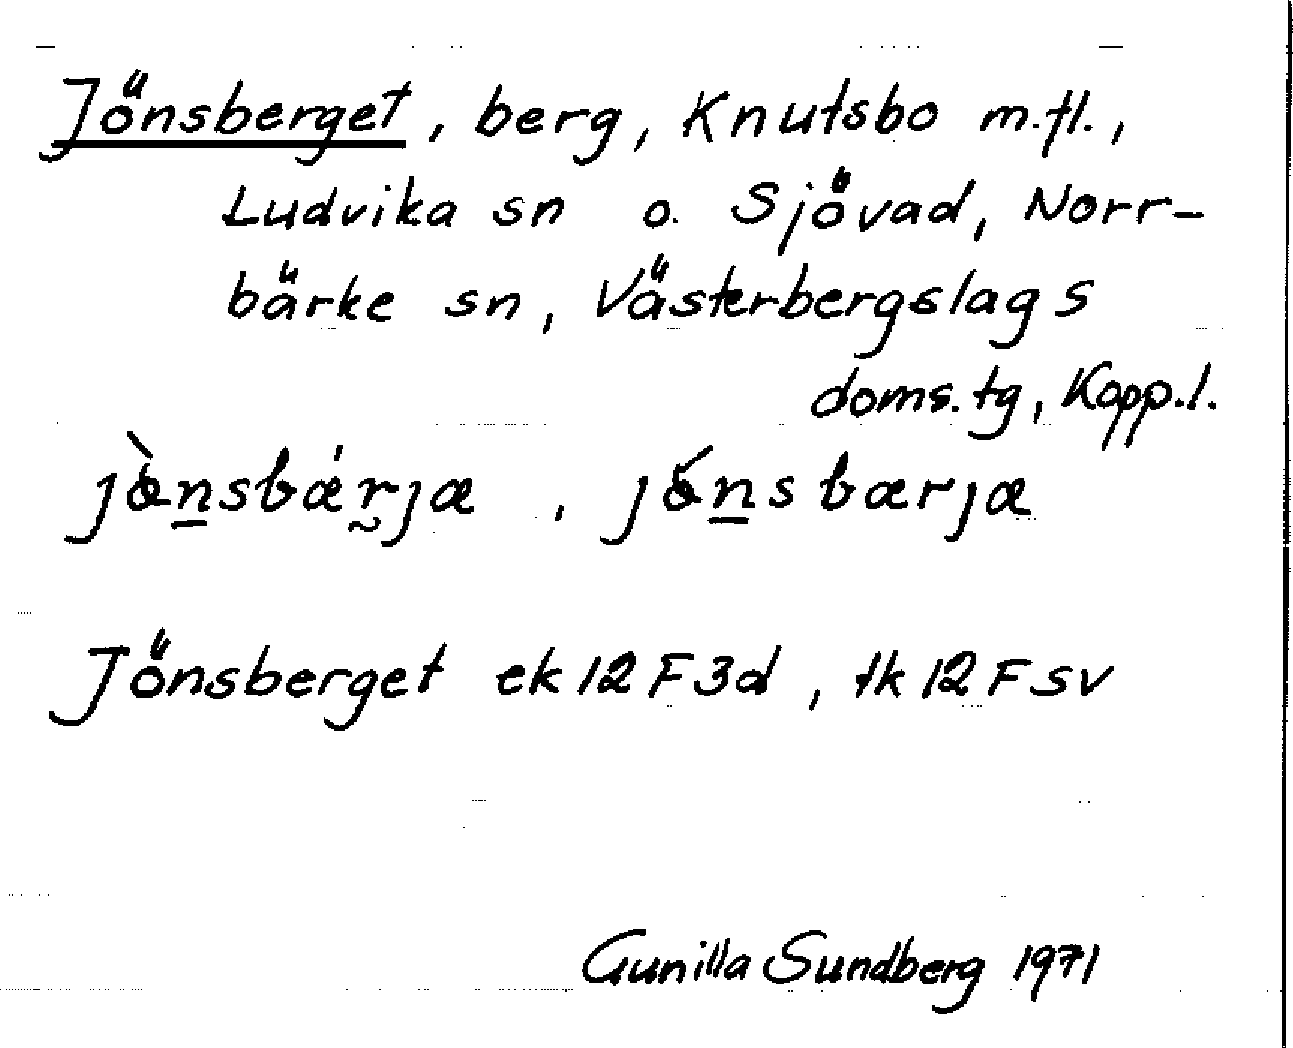 Jönsberget, berg, Knutsbo m.fl.,
Ludvika sn o. Sjövad, Norr-
bärke sn, Västerbergslags
doms.tg, Kopp.l.
jò̀n̲sbǽr̰jæ, jón̲sbærjæ
Jönsberget ek 12F3d, tk 12Fsv
Gunilla Sundberg 1971